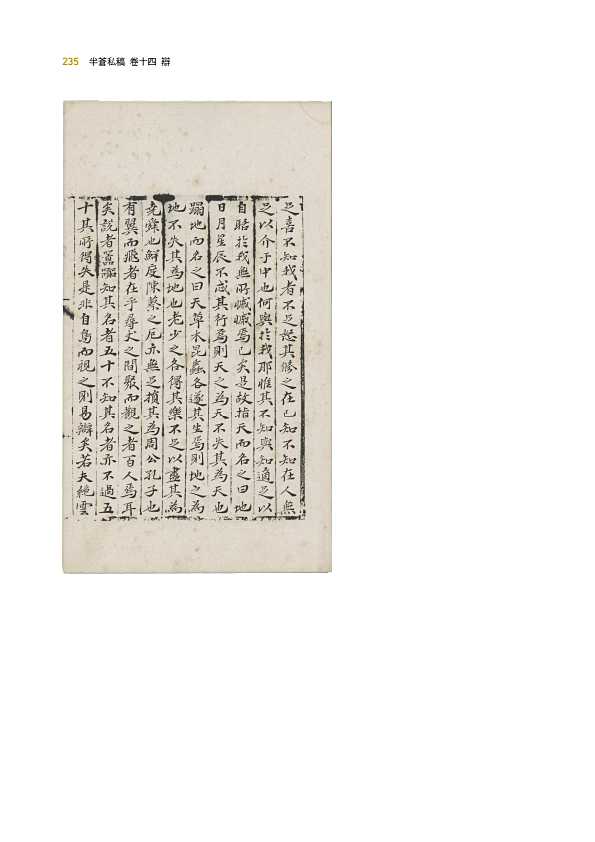 235 半蒼私稿 卷十四 辯
足喜不知我者不足怒其修之在已知不知在人無
足以介于中也何與於我耶惟其不知與知適足以
自賊於我無所嘁嘁焉已矣是故指天而名之曰地
日月星辰不忒其行焉則天之為天不失其為天也
蹋地而名之曰天草木昆蟲各遂其生焉則地之為
地不失其為地也老少之各得其樂不足以盡其為
堯舜也鮮度陳蔡之厄亦無足損其為周公孔子也
有翼而飛者在乎尋丈之間聚而觀之者百人焉耳
矣說者嚚嚚知其名者五十不知其名者亦不過五
十其所得失是非自鳥而視之則易辯矣若夫絶雲